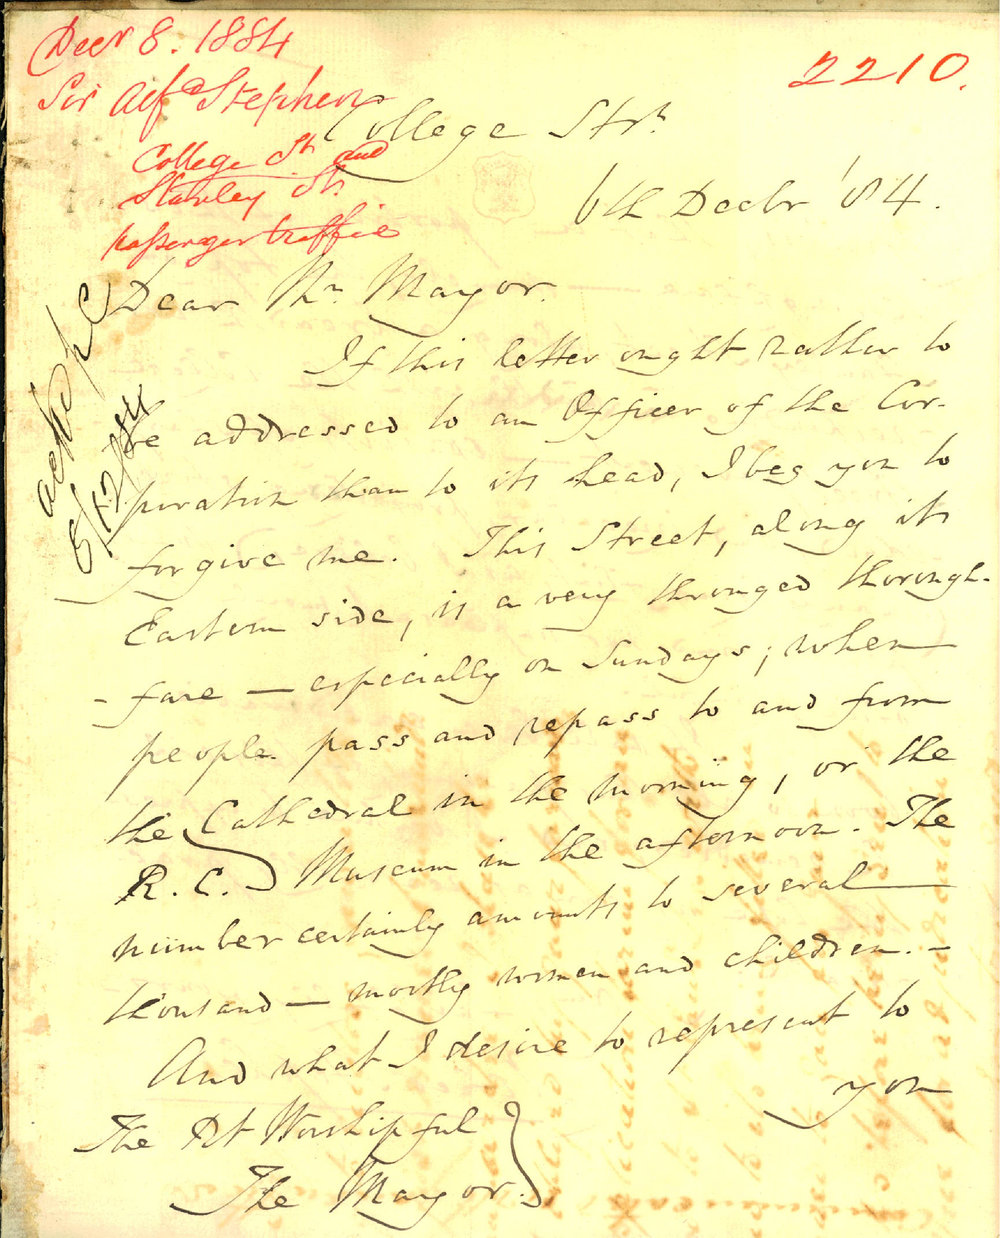 Decr 8. 1884
Sir Alfd Stephen
College St and
Stanley St.
passenger traffic
2210.
College Str.
6th Decbr '84.
Dear Mr Mayor.
If this letter ought rather to
be addressed to an Officer of the Cor-
poration than to its head, I beg you to
forgive me. This Street, along its
Eastern side, is a very thronged thorough-
-fare — especially on Sundays; when
people pass and repass to and from
the Cathedral in the morning, or the
R.C. Museum in the afternoon. The
number certainly amounts to several
thousand — mostly women and children. —
And what I desire to represent to
you
The Rt Worshipful
The Mayor.
8/12/84